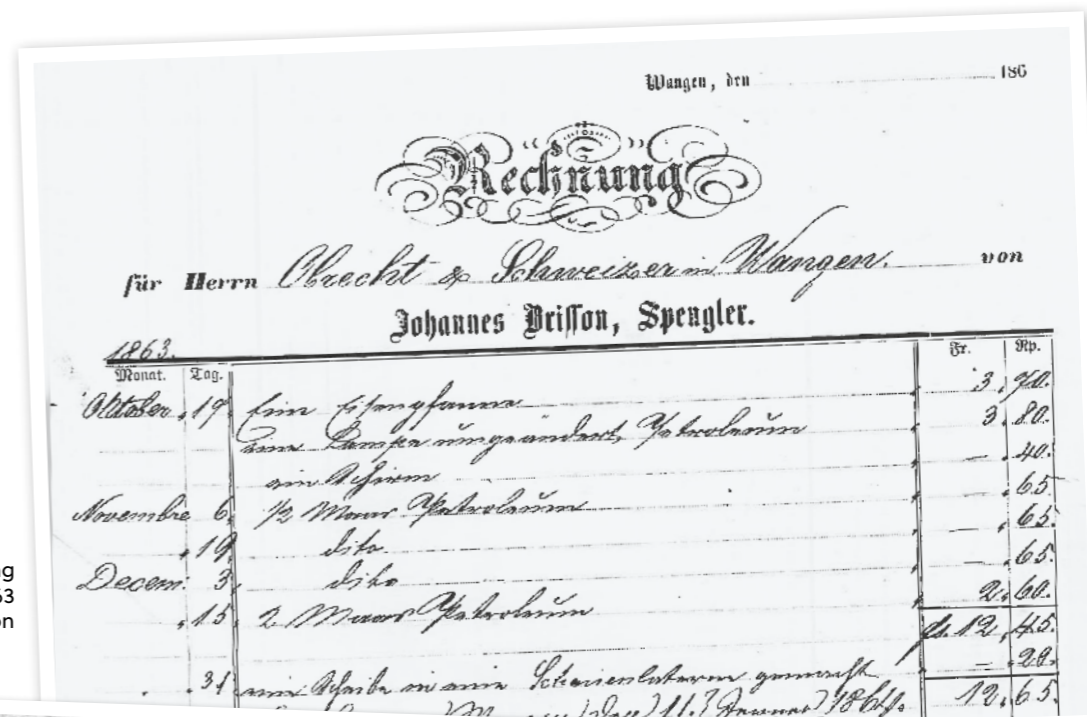 Wangen, den 186
Rechnung
für Herrn Obrecht & Schweizer in Wangen. von
Johannes Brisson, Spengler.
1863.
Monat. Tag. Fr. Rp.
Oktober 19. Eine Eisenpfanne 3. 70.
eine Lampe umgeändert, Petroleum 3. 80.
ein Schirm — 40.
Novembre 6. 1/2 Maas Petroleum — 65.
" 19. dito — 65.
Decem. 3. dito — 65.
" 15. 2 Maas Petroleum 2. 60.
fr. 12. 45.
" 31 eine Scheibe in eine gemacht — 20.
Wangen den 11. Jenner 1864. 12. 65.
ng
63
on